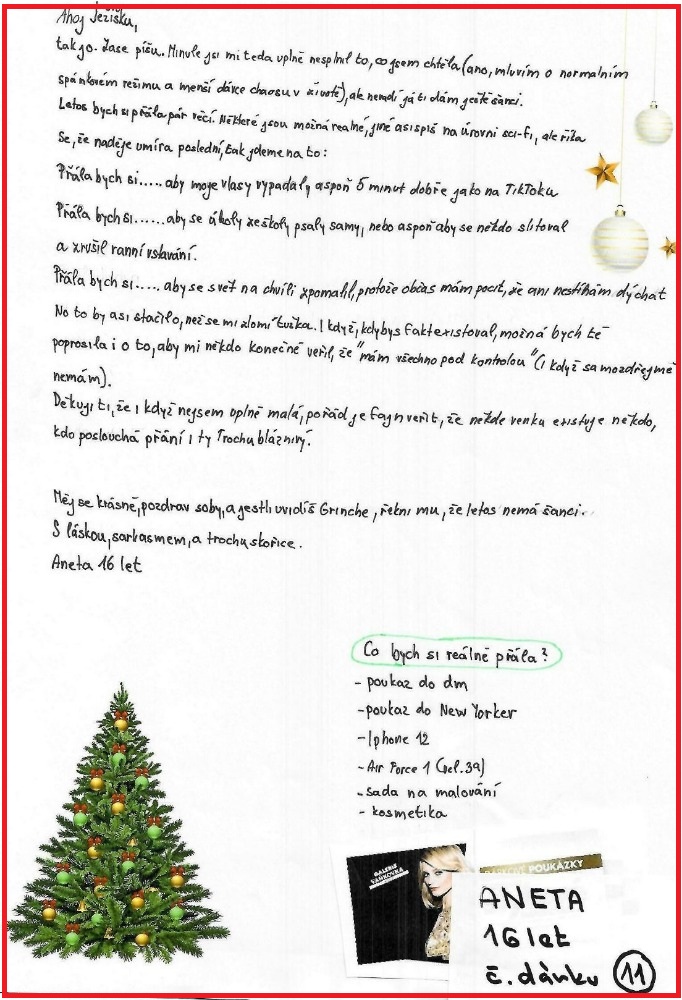 Ahoj Ježíšku,
tak jo. Zase píšu. Minule jsi mi teda uplně nesplnil to, co jsem chtěla (ano, mluvím o normalním
spánkovém režimu a menší dávce chaosu v životě), ale nevadí já ti dám ještě šanci.
Letos bych si přála pár věcí. Některé jsou možná realné, jiné asi spíš na úrovni sci-fi, ale říka
se, že naděje umíra poslední, tak jdeme na to:
Přála bych si..... aby moje vlasy vypadaly aspoň 5 minut dobře jako na TikToku
Přála bych si...... aby se úkoly ze školy psaly samy, nebo aspoň aby se někdo slitoval
a zrušil ranní vstavání.
Přála bych si..... aby se svět na chvíli zpomalil, protože občas mám pocit, že ani nestíhám dýchat
No to by asi stačilo, než se mi zlomí tužka. I když, kdybys fakt existoval, možná bych tě
poprosila i o to, aby mi někdo konečně veřil, že "mám všechno pod kontrolou" (i když samozdřejmě
nemám).
Děkuji ti, že i když nejsem uplně malá, pořád je fajn veřit, že někde venku existuje někdo,
kdo poslouchá přání i ty Trochu bláznivý.
Měj se krásně, pozdrav soby, a jestli uvidíš Grinche, řekni mu, že letos nemá šanci.
S láskou, sarkasmem, a trochu skořice.
Aneta 16 let
Co bych si reálně přála?
- poukaz do dm
- poukaz do New Yorker
- Iphone 12
- Air Force 1 (vel. 39)
- sada na malování
- kosmetika
GALERIE
VAŇKOVKA
POUKÁZKY
ANETA
16 let
č. dárku 11